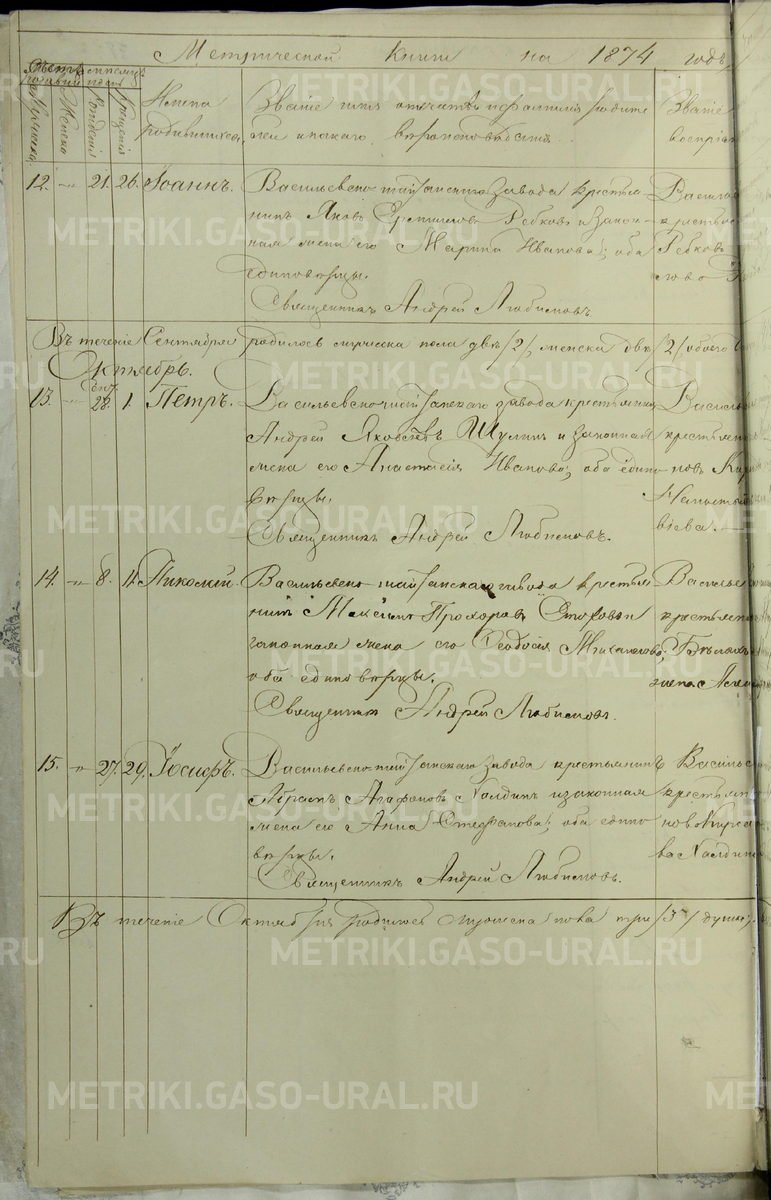 Метрической Книги на 1874 годъ
Счетъ родившихся
Мѣсяцъ и день
Мужеска
Женска
Рожденія
Крещенія
Имена родившихся.
Званіе имя отчество и фамилія родите
лей и какого вѣроисповѣданія.
Званіе
воспрі
12. -"- 21. 26. Іоаннъ.
Васильевско-Шайтанскаго Завода крестья
нинъ Яковъ Рѣбковъ и закон
ная жена его Марина Иванова; оба
единовѣрцы.
Священникъ Андрей Любимовъ
Василь
крестья
Рѣбковъ
Въ теченіе Сентября родилось мужеска пола двѣ /2/, женска двѣ /2/ обоего
Октябрь.
13. -"- Сен. 28. 1. Петръ.
Васильевско-Шайтанскаго завода крестьянинъ
Андрей Яковлевъ Шулинъ и законная
жена его Анастасія Иванова; оба едино
вѣрцы.
Священникъ Андрей Любимовъ.
Василье
крестьян
новъ
вѣева.
14. -"- 8. 11. Николай.
Васильевско-Шайтанскаго завода крестья
нинъ Максимъ Прохоровъ и
законная жена его Ѳеодосія Михайлова;
оба единовѣрцы.
Священникъ Андрей Любимовъ.
Василье
крестьян
жена
15. -"- 27. 29. Іосифъ.
Васильевско-Шайтанскаго Завода крестьянинъ
Абрамъ Агафоновъ Халдинъ и законная
жена его Анна Стефанова; оба едино
вѣрцы.
Священникъ Андрей Любимовъ.
Василье
крестьян
новъ
ва Халдин
Въ теченіе Октября родилось мужеска пола три /3/ души,
METRIKI.GASO-URAL.RU